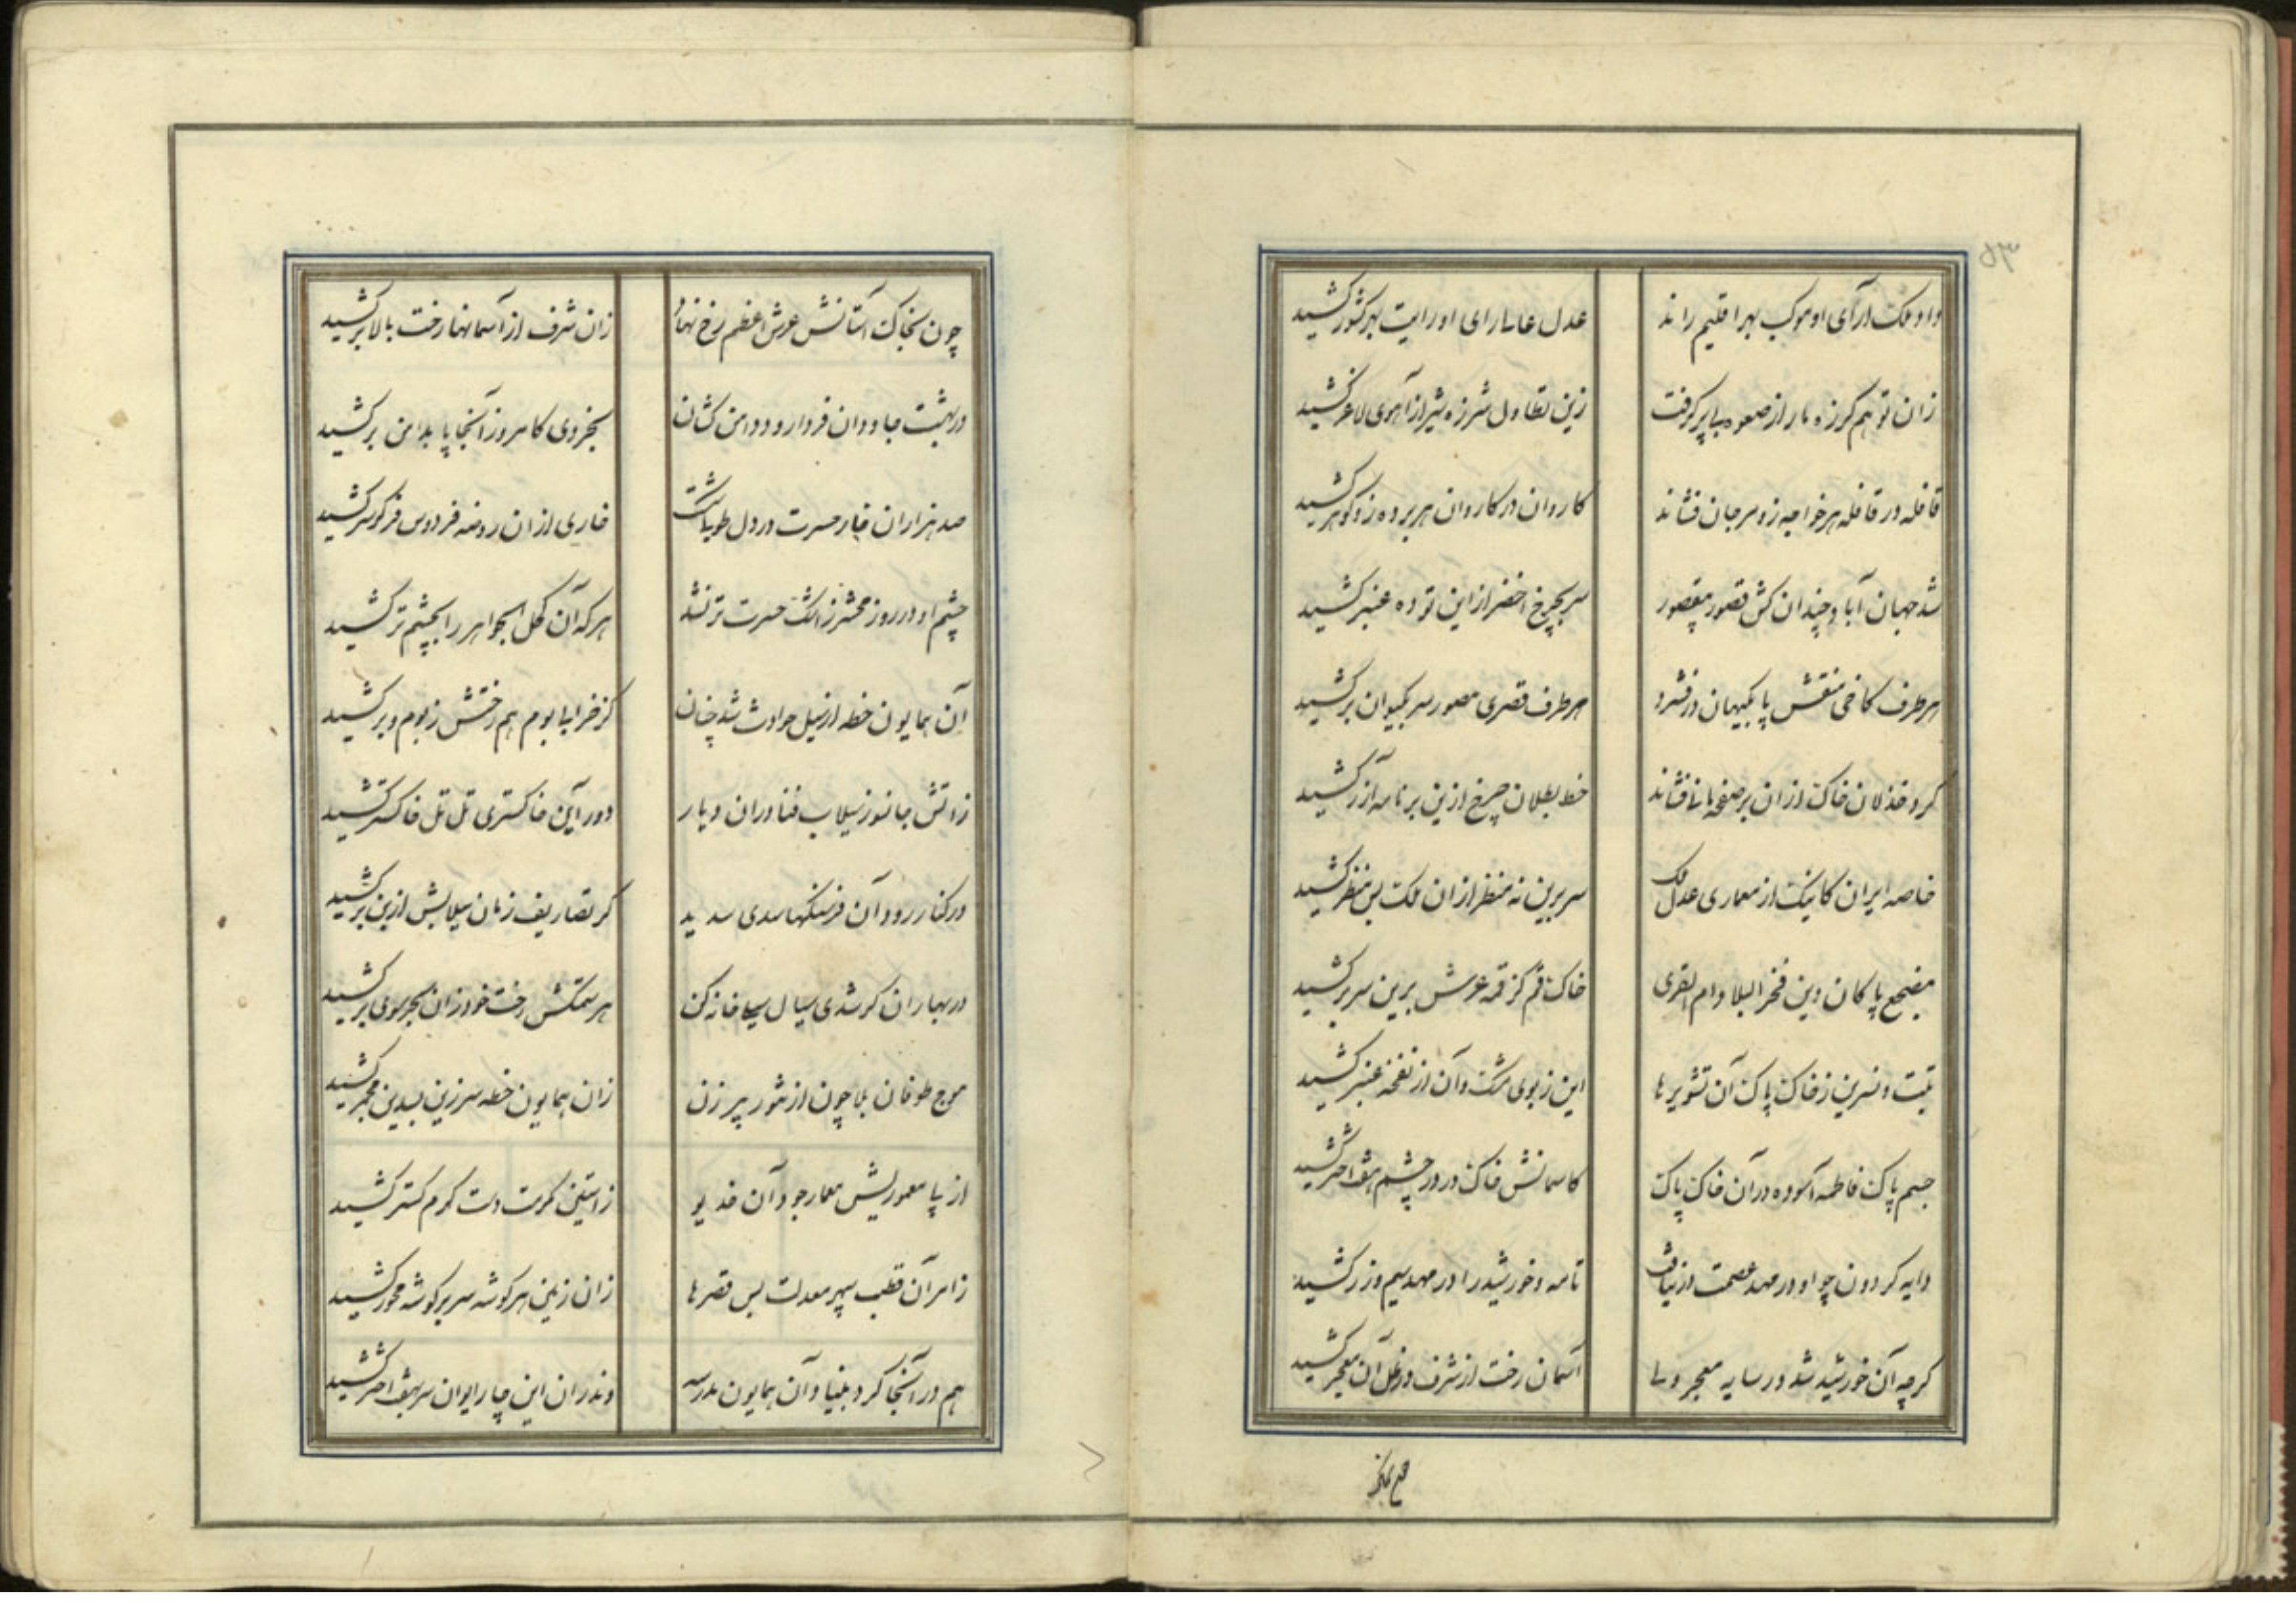 داد ملک آرای او موکب بهر اقلیم راند
عدل عالم آرای او رایت بهر کشور کشید
زان توهم گرزه مار از صعوه بی پر گرفت
زین تطاول شرزه شیر از آهوی لاغر کشید
قافله در قافله هر خواجه زو مرجان فشاند
کاروان در کاروان هر برده زو گوهر کشید
شد جهان آباد چندان کش قصور بیقصور
سر بچرخ اخضر از این توده عنبر کشید
هر طرف کاخی منقش پا بکیهان در فشرد
هر طرف قصری مصور سر بکیوان بر کشید
گرد خذلان خاک از ان بر صفحه مانی فشاند
خط بطلان چرخ از ین بر نامه آزر کشید
خاصه ایران کاینک از معماری عدل ملک
سر برین نه منظر از ان ملک بس منظر کشید
مضجع پاکان دین فخر البلاد ام القری
خاک قم کز قمه عرش برین سر بر کشید
تبت و نسرین ز خاک پاک آن تشویرها
این ز بوی مشک و آن از نفحه عنبر کشید
جسم پاک فاطمه آسوده در آن خاک پاک
کاسمانش خاک در در چشم هفت اختر کشید
دایه گردون چو او در مهد عصمت از نیافت
تا مه و خورشید را در مهد سیم و زر کشید
گرچه آن خورشید شد در سایه معجر ولی
آسمان رخت از شرف در ظل آن معجر کشید
چون بخاک آستانش عرش اعظم رخ نهاد
زان شرف از آسمانها رخت بالاتر کشید
در بهشت جاودان فردا رود دامن کشان
بخردی کامروز آنجا پا بدامن بر کشید
صد هزاران خار حسرت در دل طوبی شکست
خاری از ان روضه فردوس فر گر سر کشید
چشم او در روز محشر ز اشک حسرت تر نشد
هر که آن کحل الجواهر را بچشم تر کشید
آن همایون خطه از سیل حوادث شد چنان
کز خرابیها بوم هم رختش ز بوم و بر کشید
ز آتش جانسوز سیلاب فنا در ان دیار
دور آین خاکستری تل تل خاکستر کشید
در کنار رود آن فرسنگها سدی سدید
گر تصاریف زمان سیلابش از بن بر کشید
در بهاران گر شدی سیال سیل خانه کن
هر سمکش رخت خود زان بحر سوی بر کشید
موج طوفان بلا چون از تنور پیر زن
زان همایون خطه سر زین بسدین مجمر کشید
از پی معموریش معمار جود آن خدیو
ز آستین مکرمت دست کرم گستر کشید
ز امر آن قطب سپهر معدلت بس قصرها
زان زمین هر گوشه سر بر گوشه محور کشید
هم در آنجا کرد بنیاد آن همایون مدرسه
وندران این چار ایوان سر بهفت اختر کشید